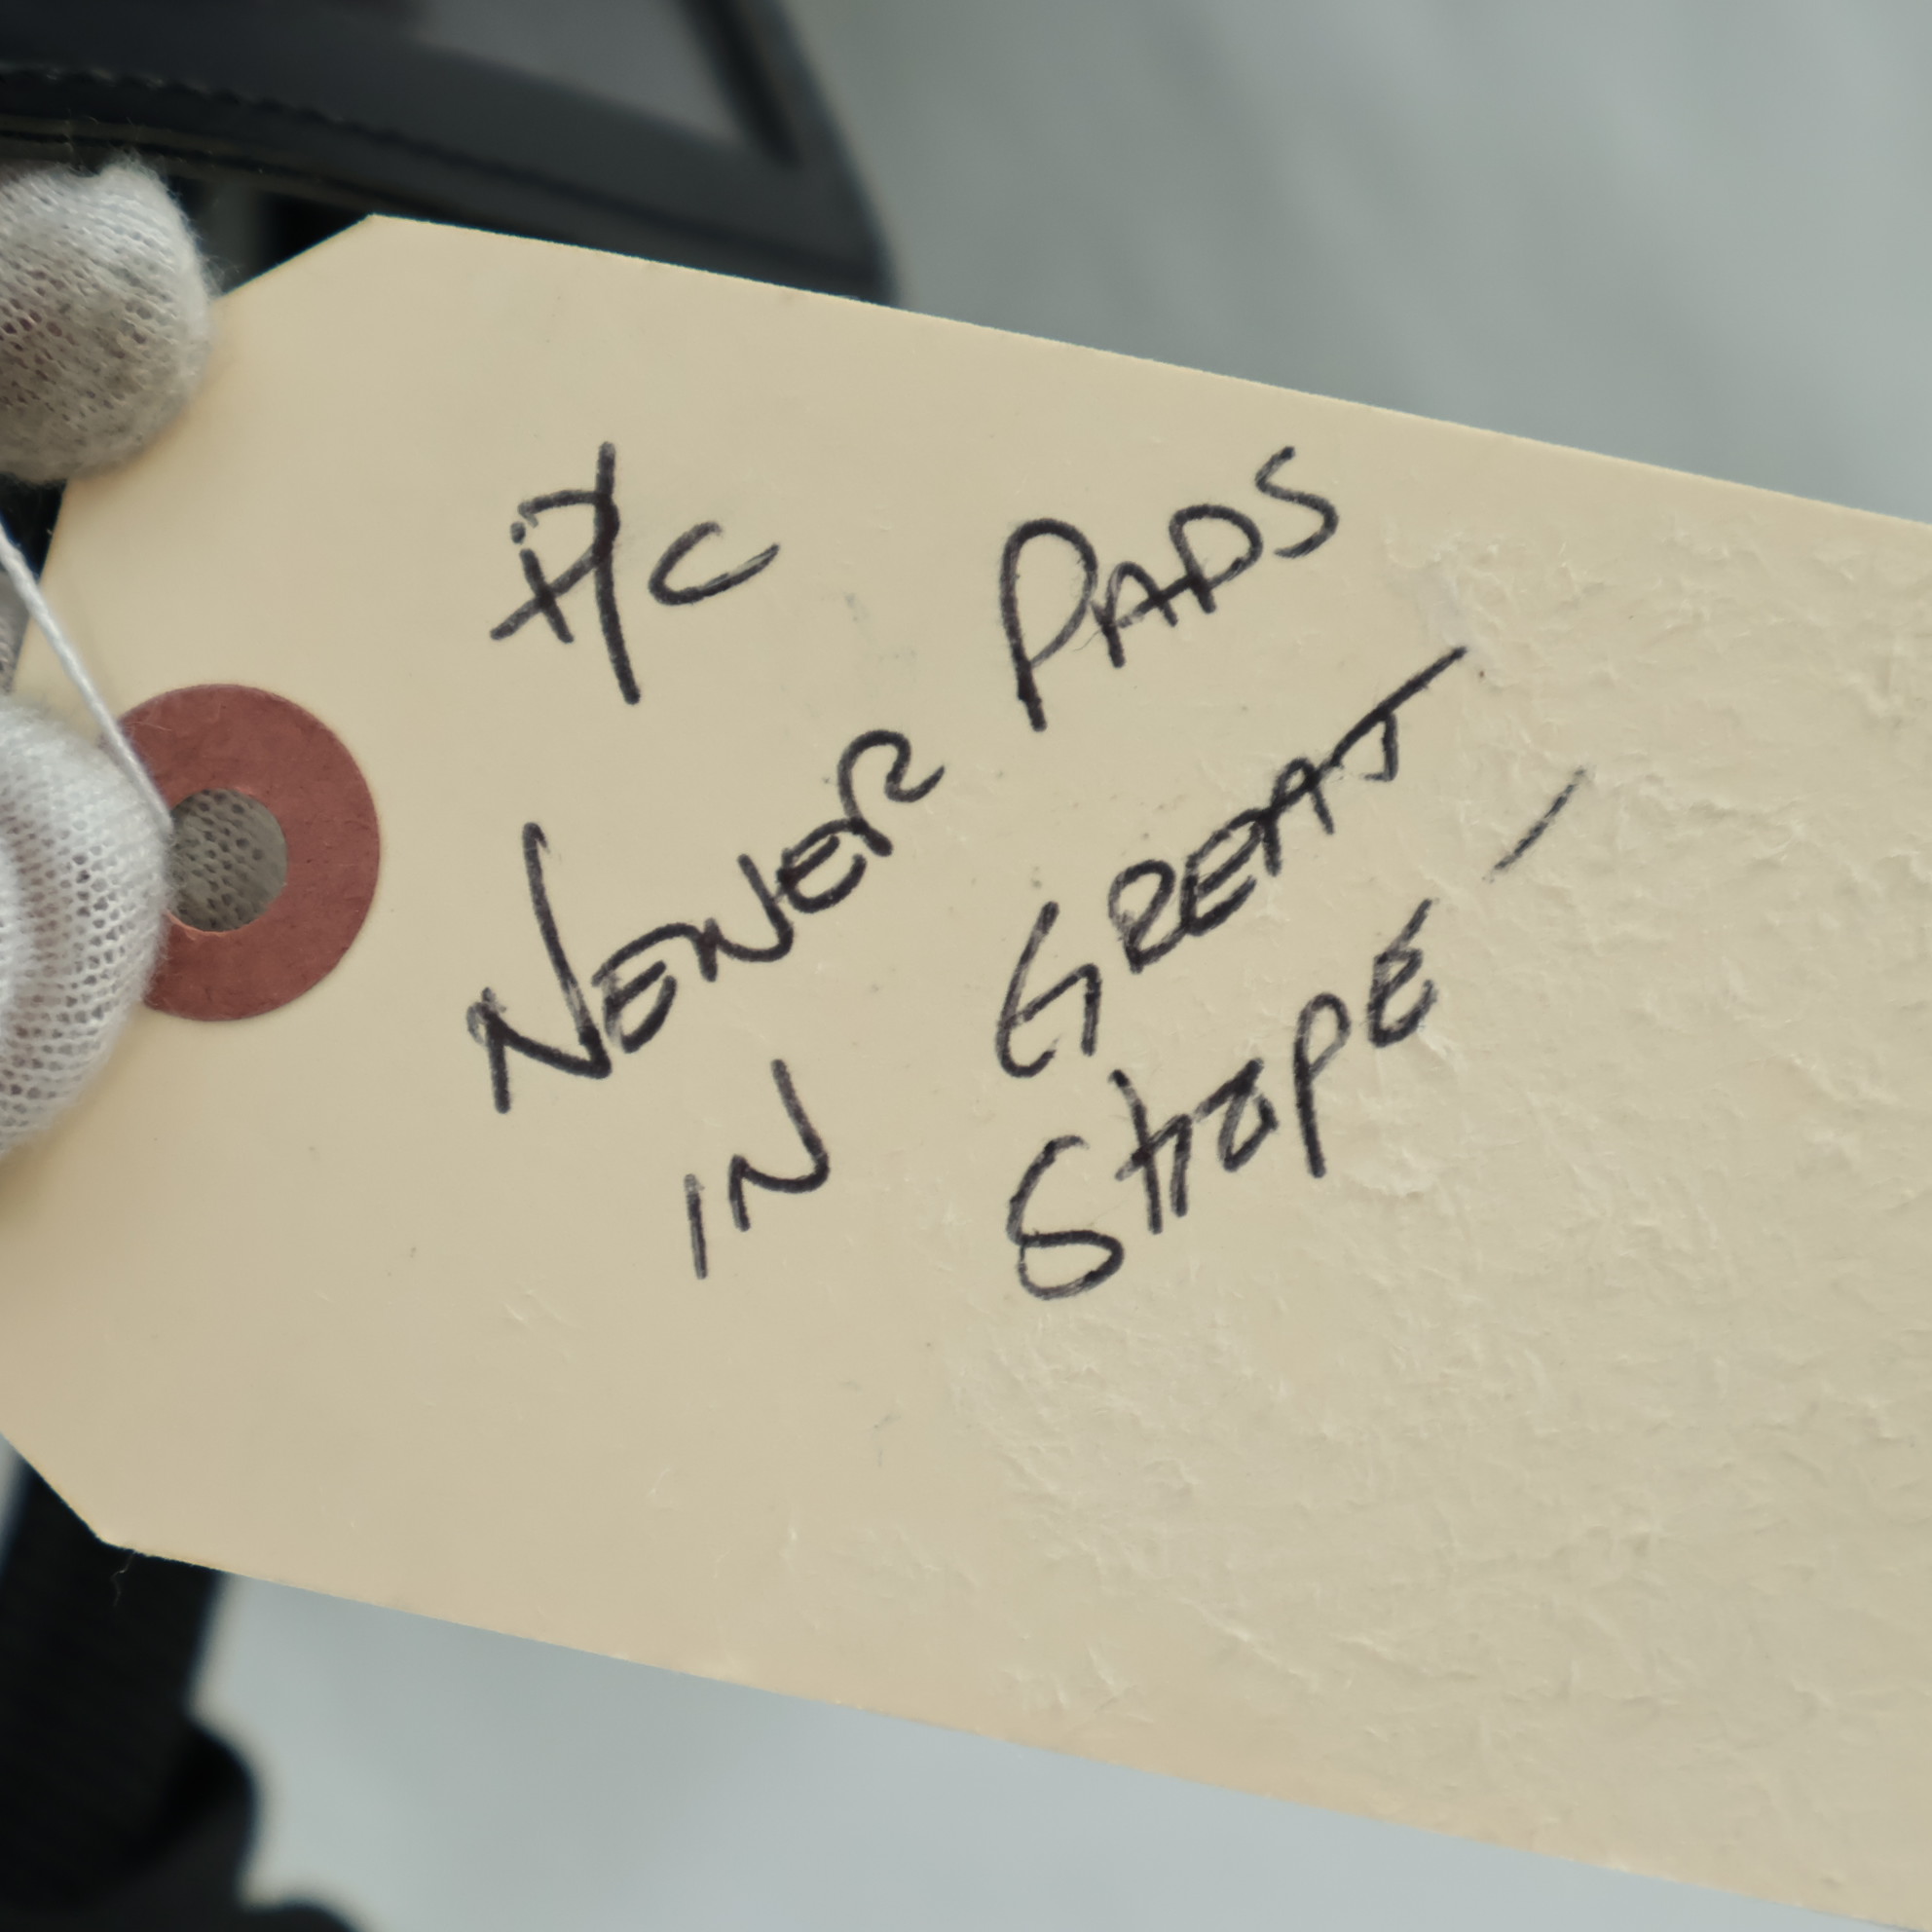 A/C
NEWER PADS
IN GREAT
SHAPE